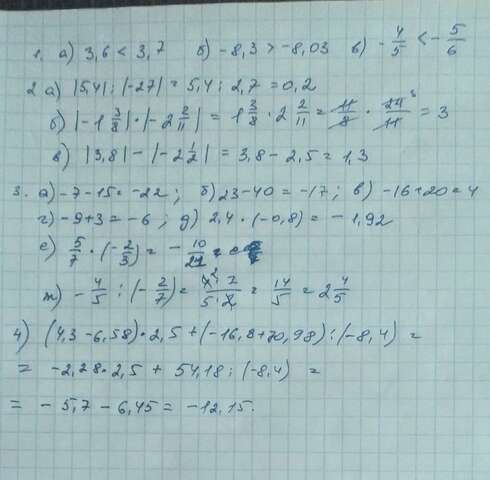 1. а) 3,6 < 3,7 б) -8,3 > -8,03 в) -4/5 < -5/6
2 а) |5,4| : |-27| = 5,4 : 2,7 = 0,2
б) |-1 3/8| · |-2 2/11| = 1 3/8 · 2 2/11 = 11/8 · 24/11 = 3
в) |3,8| - |-2 1/2| = 3,8 - 2,5 = 1,3
3. а) -7-15 = -22; б) 23-40 = -17; в) -16+20 = 4
г) -9+3 = -6; д) 2,4 · (-0,8) = -1,92
е) 5/7 · (-2/3) = -10/21
ж) -4/5 : (-2/7) = 4·7/5·2 = 14/5 = 2 4/5
4) (4,3-6,58)·2,5+(-16,8+70,98):(-8,4) =
= -2,28·2,5 + 54,18 : (-8,4) =
= -5,7 - 6,45 = -12,15.